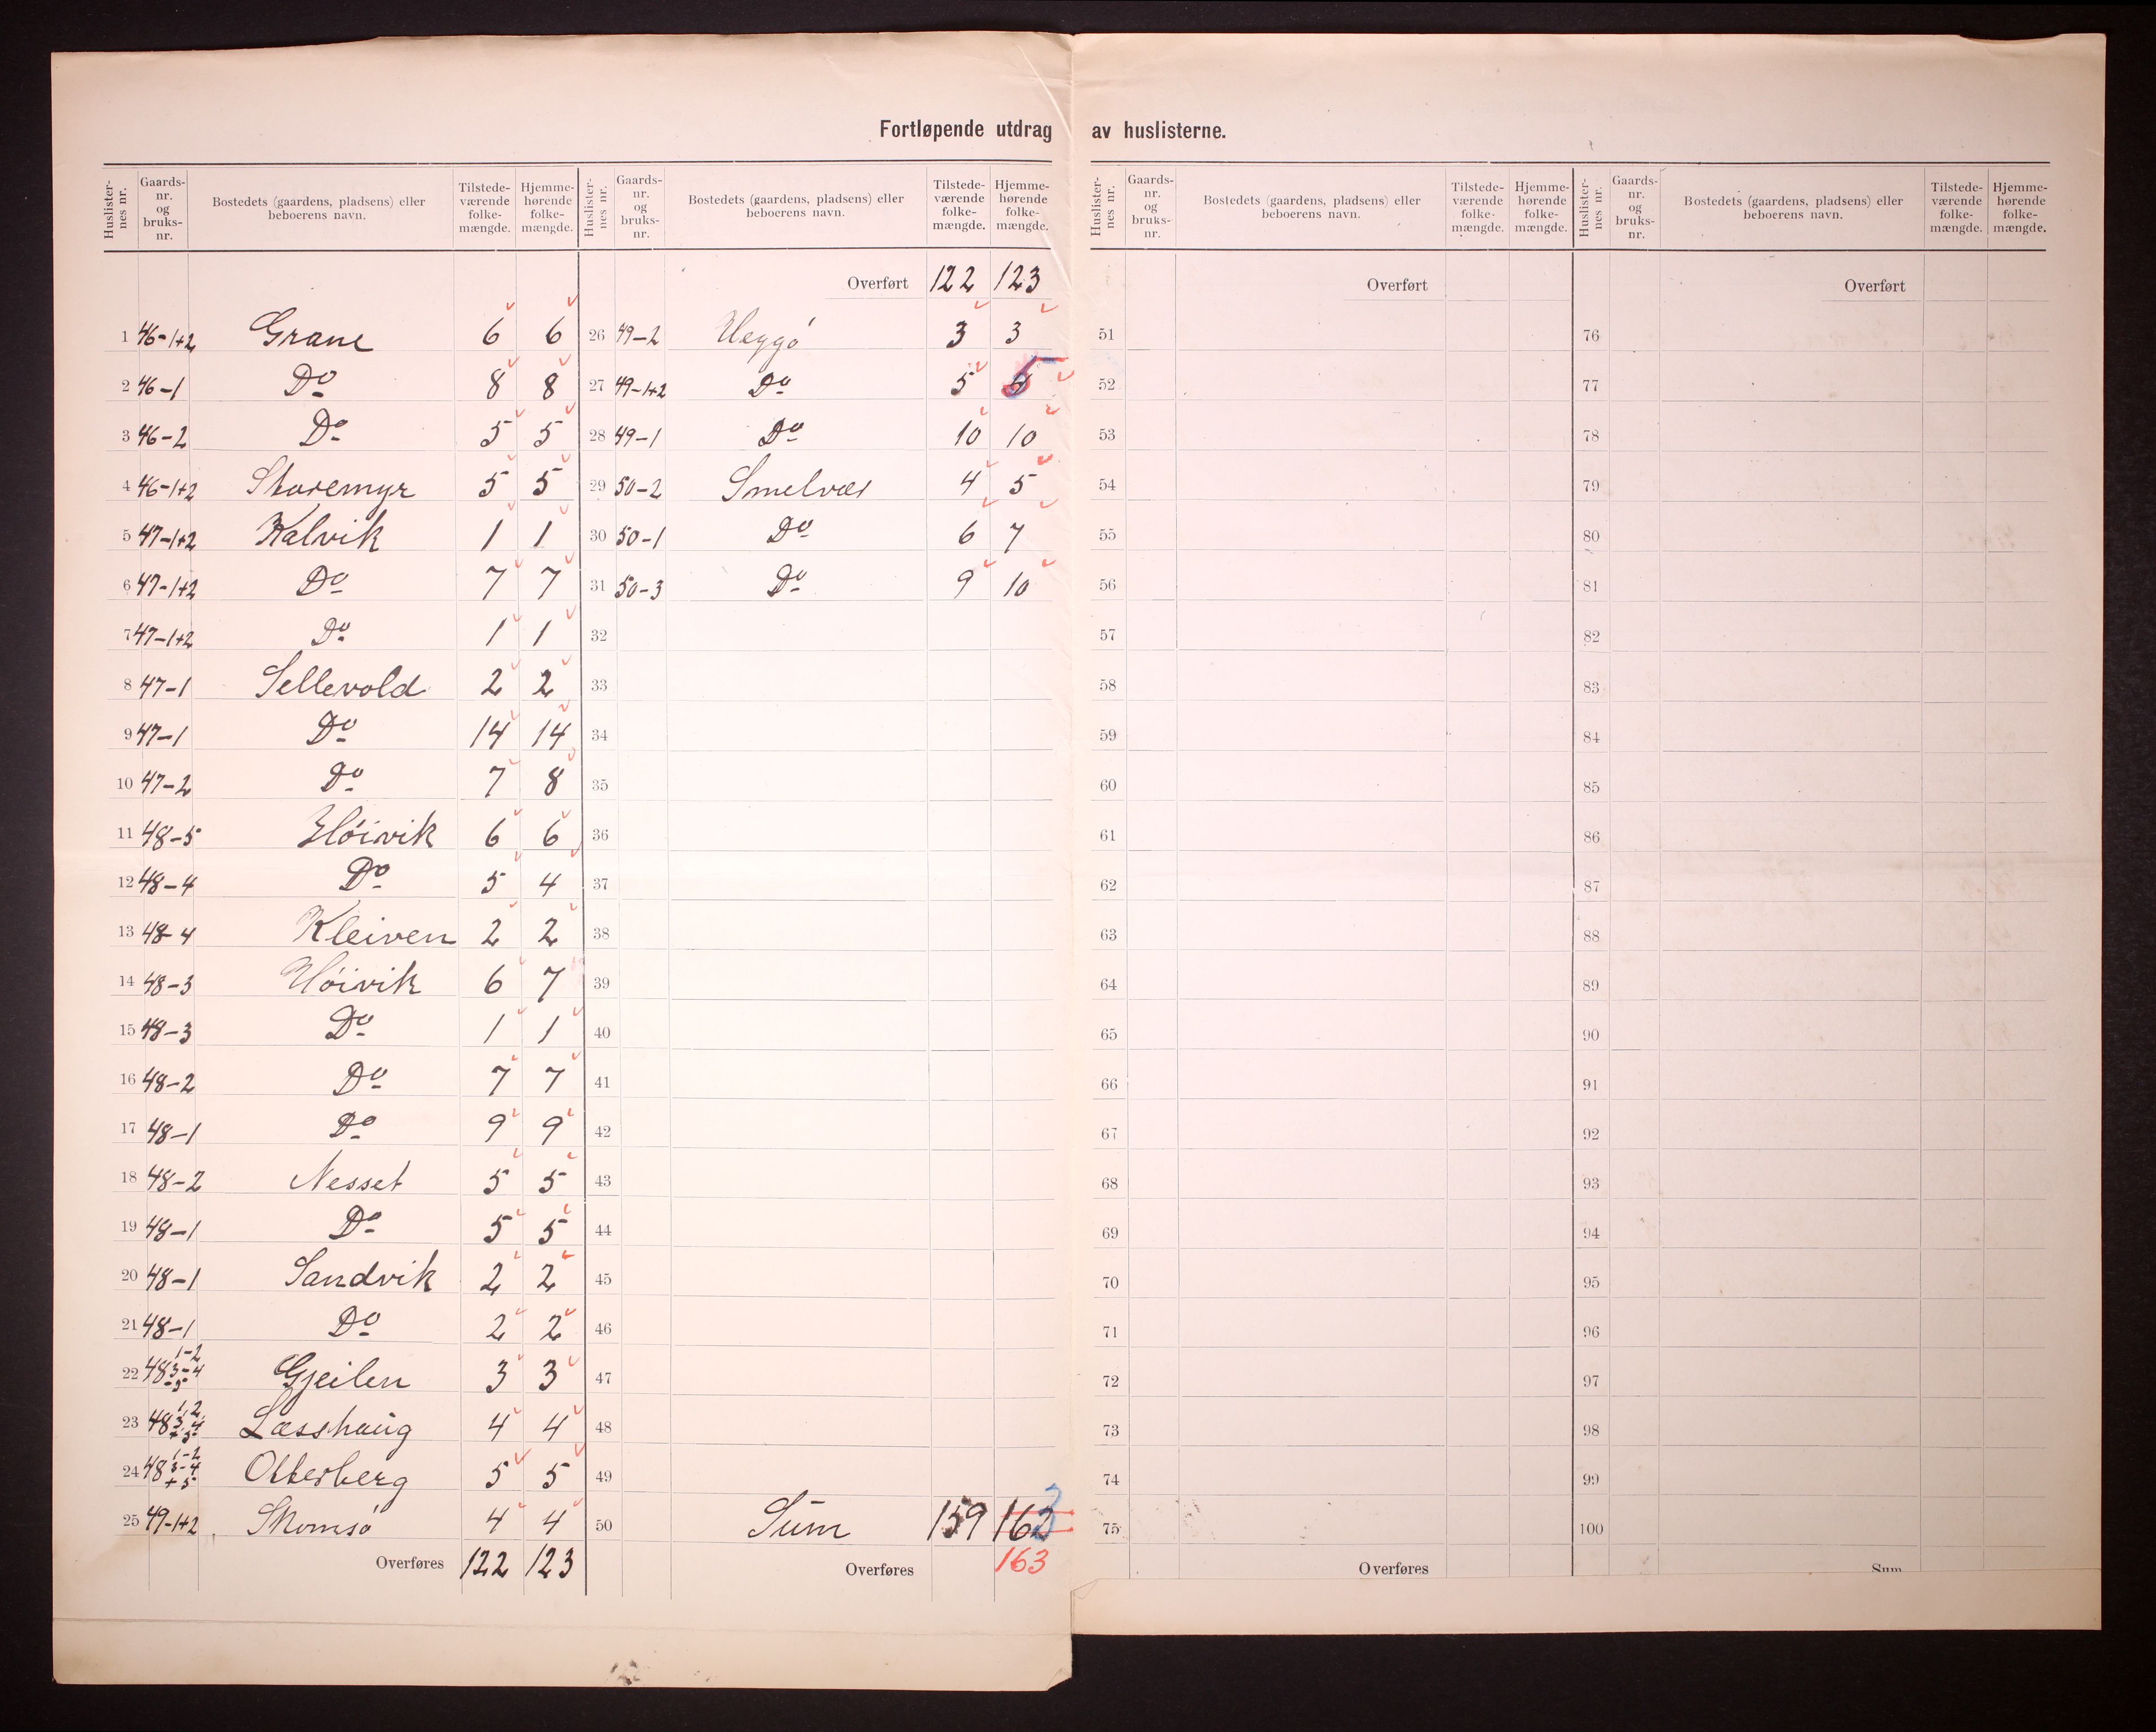 Fortløpende utdrag av huslisterne.
Huslister-nes nr. Gaards-nr. og bruks-nr. Bostedets (gaardens, pladsens) eller beboerens navn. Tilstede-værende folke-mængde. Hjemme-hørende folke-mængde.
1 46-1+2 Grane 6 6
2 46-1 Do 8 8
3 46-2 Do 5 5
4 46-1+2 Storemyr 5 5
5 47-1+2 Kalvik 1 1
6 47-1+2 Do 7 7
7 47-1+2 Do 1 1
8 47-1 Sellevold 2 2
9 47-1 Do 14 14
10 47-2 Do 7 8
11 48-5 Høivik 6 6
12 48-4 Do 5 4
13 48-4 Kleiven 2 2
14 48-3 Høivik 6 7
15 48-3 Do 1 1
16 48-2 Do 7 7
17 48-1 Do 9 9
18 48-2 Nesset 5 5
19 48-1 Do 5 5
20 48-1 Sandvik 2 2
21 48-1 Do 2 2
22 48 1-2 3-4 -5 Gjeilen 3 3
23 48 1,2, 3,4 +5 Læsshaug 4 4
24 48 1-2 3-4 +5 Otterberg 5 5
25 49-1+2 Skomsø 4 4
Overføres 122 123
Huslister-nes nr. Gaards-nr. og bruks-nr. Bostedets (gaardens, pladsens) eller beboerens navn. Tilstede-værende folke-mængde. Hjemme-hørende folke-mængde.
Overført 122 123
26 49-2 Heggø 3 3
27 49-1+2 Do 5 5
28 49-1 Do 10 10
29 50-2 Smelvær 4 5
30 50-1 Do 6 7
31 50-3 Do 9 10
32
33
34
35
36
37
38
39
40
41
42
43
44
45
46
47
48
49
50 Sum 159 163
Overføres 163
Huslister-nes nr. Gaards-nr. og bruks-nr. Bostedets (gaardens, pladsens) eller beboerens navn. Tilstede-værende folke-mængde. Hjemme-hørende folke-mængde.
Overført
51
52
53
54
55
56
57
58
59
60
61
62
63
64
65
66
67
68
69
70
71
72
73
74
75
Overføres
Huslister-nes nr. Gaards-nr. og bruks-nr. Bostedets (gaardens, pladsens) eller beboerens navn. Tilstede-værende folke-mængde. Hjemme-hørende folke-mængde.
Overført
76
77
78
79
80
81
82
83
84
85
86
87
88
89
90
91
92
93
94
95
96
97
98
99
100
Sum